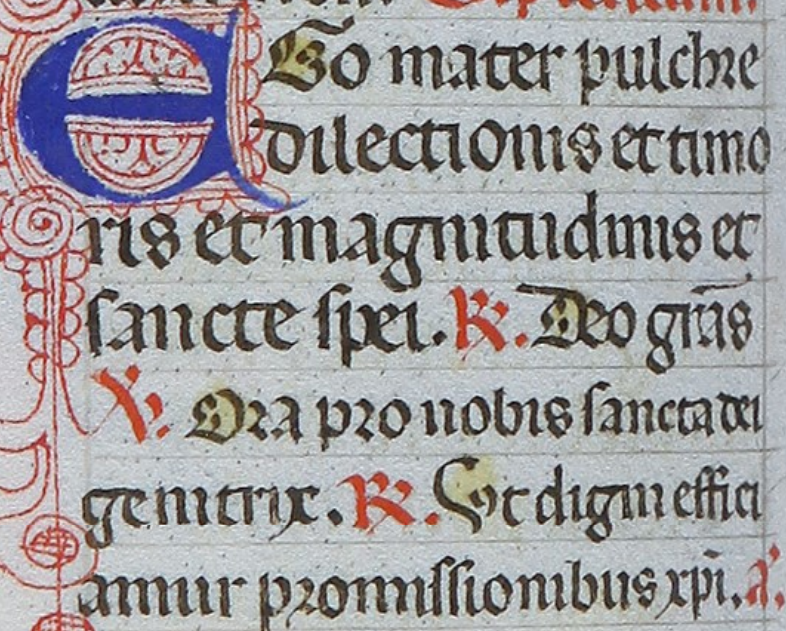 EGo mater pulchre
dilectionis et timo
ris et magnitudinis et
sancte spei. ℟. Deo gr̄as
℣. Ora pro nobis sancta dei
genitrix. ℟. Ut digni effici
amur promissionibus xp̄i. a.